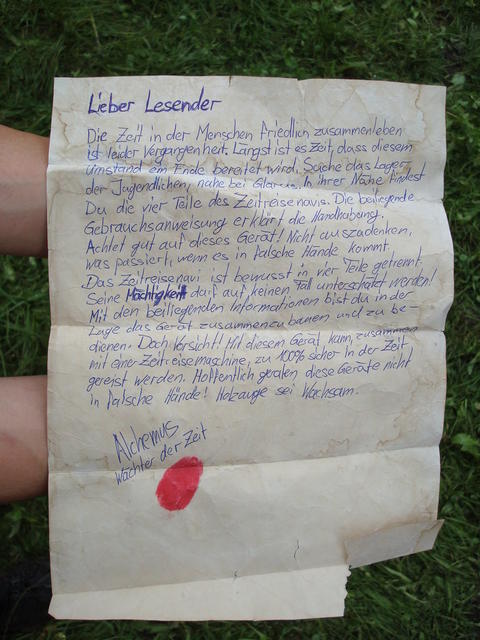 Lieber Lesender
Die Zeit in der Menschen friedlich zusammenleben
ist leider Vergangenheit. Längst ist es Zeit, dass diesem
Umstand ein Ende bereitet wird. Suche das Lager
der Jugendlichen, nahe bei Glarus. In ihrer Nähe findest
Du die vier Teile des Zeitreisenavis. Die beiliegende
Gebrauchsanweisung erklärt die Handhabung.
Achtet gut auf dieses Gerät! Nicht auszudenken,
was passiert, wenn es in falsche Hände kommt.
Das Zeitreisenavi ist bewusst in vier Teile getrennt.
Seine Mächtigkeit darf auf keinen Fall unterschätzt werden!
Mit den beiliegenden Informationen bist du in der
Lage das Gerät zusammenzubauen und zu be-
dienen. Doch Vorsicht! Mit diesem Gerät kann, zusammen
mit einer Zeitreisemaschine, zu 100% sicher in der Zeit
gereist werden. Hoffentlich geraten diese Geräte nicht
in falsche Hände! Holzauge sei Wachsam.
Alchemus
Wächter der Zeit